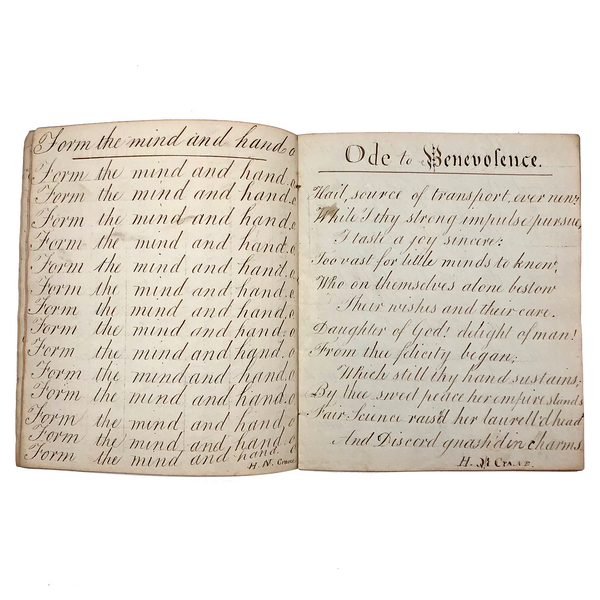 Form the mind and hand.
Form the mind and hand.
Form the mind and hand.
Form the mind and hand.
Form the mind and hand.
Form the mind and hand.
Form the mind and hand.
Form the mind and hand.
Form the mind and hand.
Form the mind and hand.
Form the mind and hand.
Form the mind and hand.
Form the mind and hand.
Form the mind and hand.
Form the mind and hand.
H. N. Crane
Ode to Benevolence.
Hail, source of transport, ever new;
While I thy strong impulse pursue,
I taste a joy sincere;
Too vast for little minds to know,
Who on themselves alone bestow
Their wishes and their care.
Daughter of God! delight of man!
From thee felicity began;
Which still thy hand sustains;
By thee sweet peace her empire stands
Fair Science rais'd her laurell'd head
And Discord gnash'd in charms
H. N Crane.